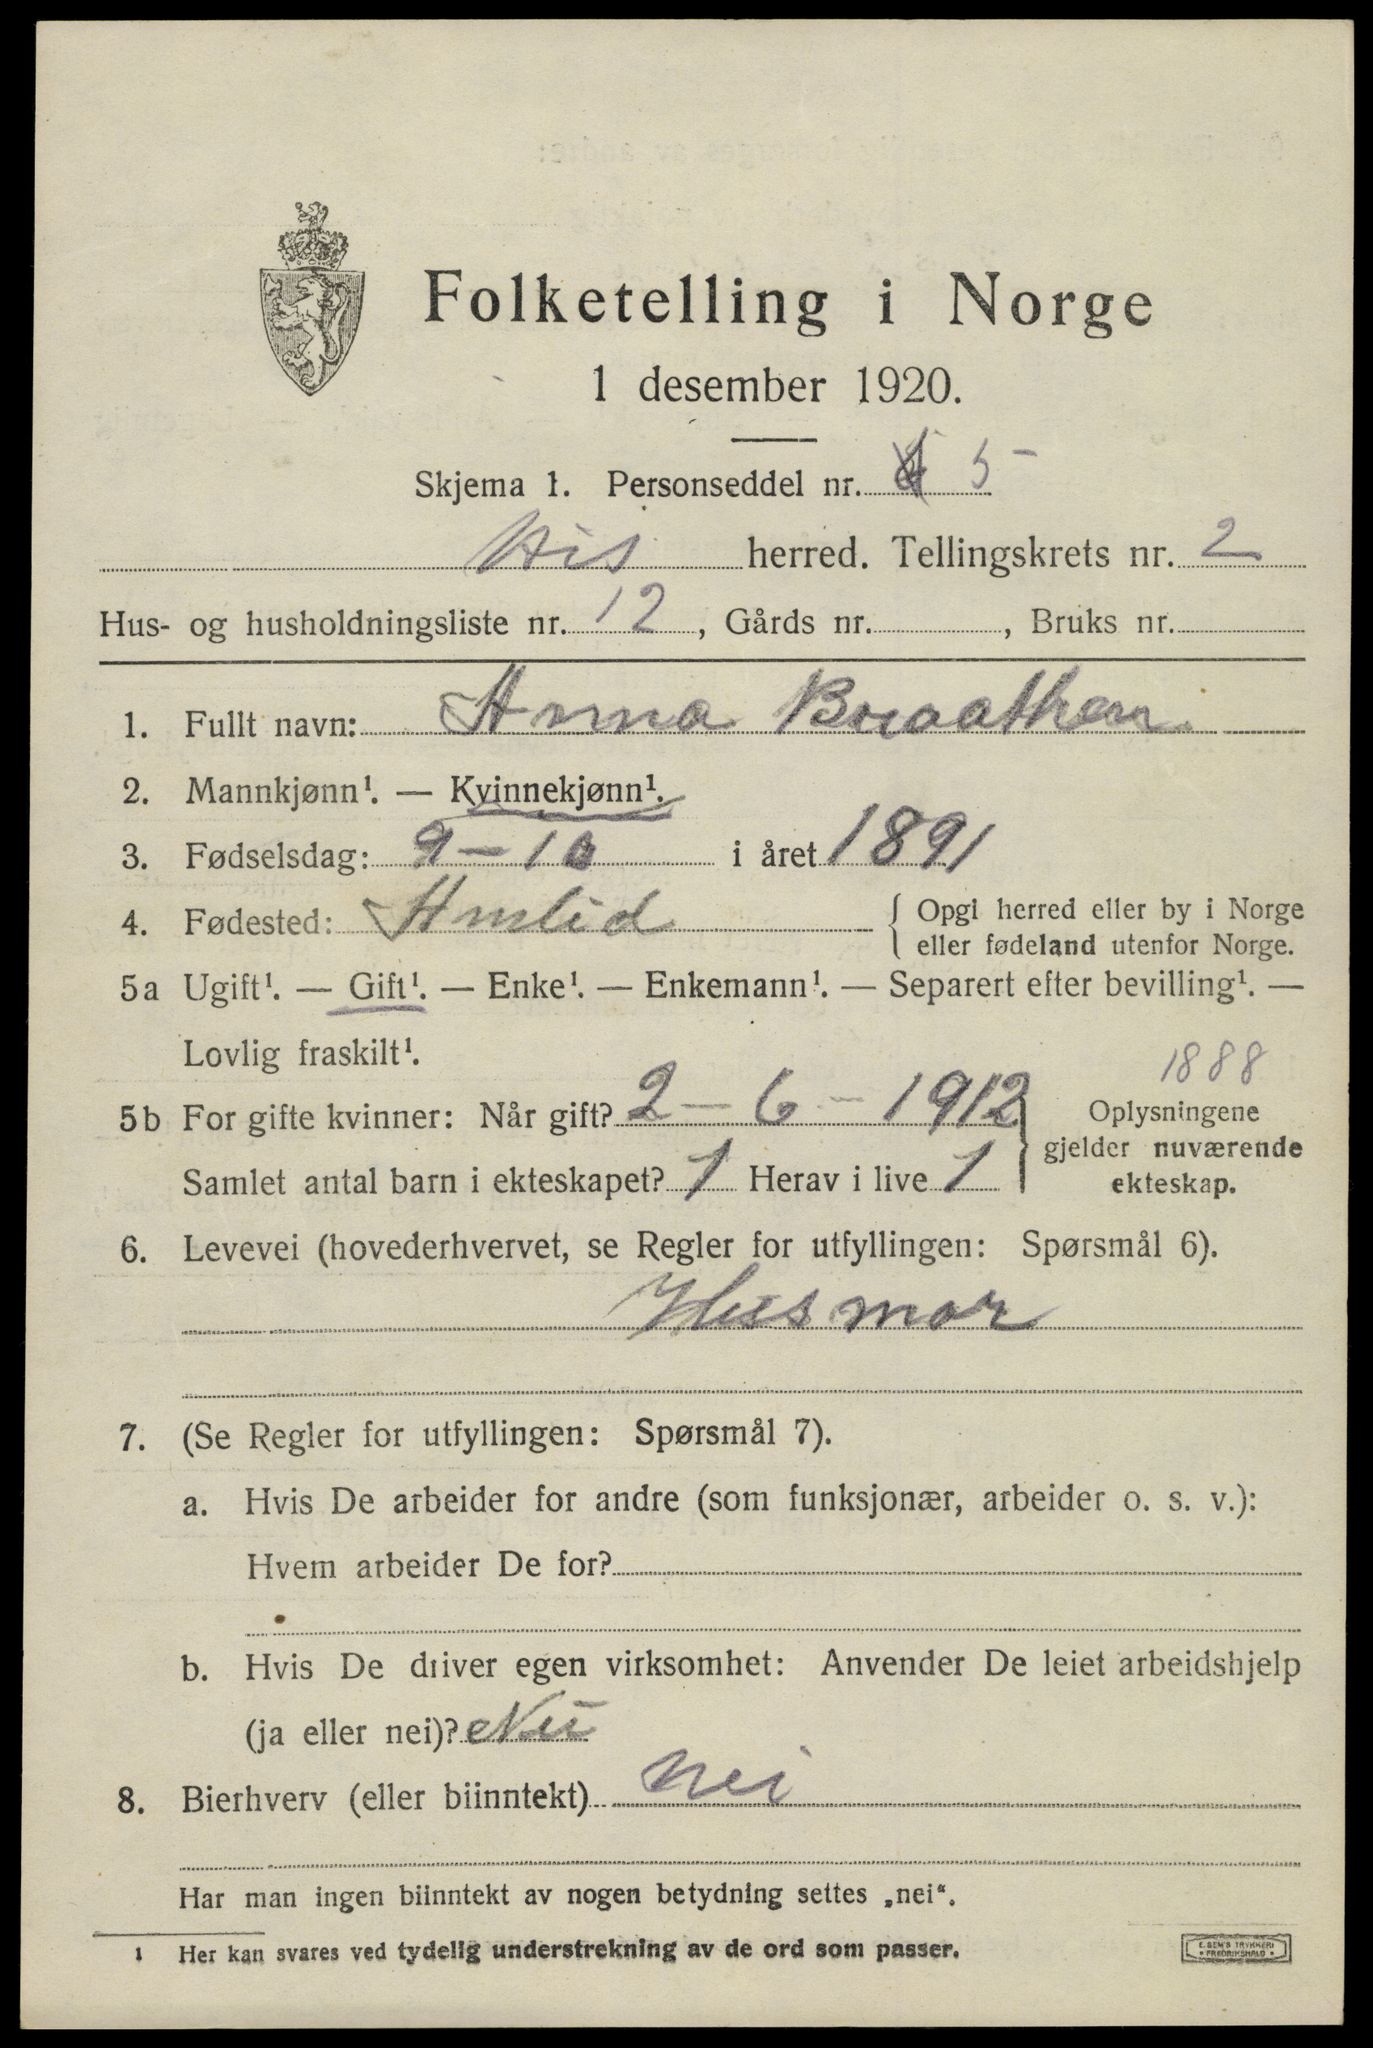 Folketelling i Norge
1 desember 1920.
Skjema 1. Personseddel nr. 5
His herred. Tellingskrets nr. 2
Hus- og husholdningsliste nr. 12, Gårds nr. , Bruks nr.
1. Fullt navn: Anna Braathen
2. Mannkjønn¹. — Kvinnekjønn¹.
3. Fødselsdag: 9-10 i året 1891
4. Fødested: Amlid { Opgi herred eller by i Norge
eller fødeland utenfor Norge.
5a Ugift¹. — Gift¹. — Enke¹. — Enkemann¹. — Separert efter bevilling¹. —
Lovlig fraskilt¹.
1888
5b For gifte kvinner: Når gift? 2-6-1912 } Oplysningene
gjelder nuværende
Samlet antal barn i ekteskapet? 1 Herav i live 1 ekteskap.
6. Levevei (hovederhvervet, se Regler for utfyllingen: Spørsmål 6).
Husmor
7. (Se Regler for utfyllingen: Spørsmål 7).
a. Hvis De arbeider for andre (som funksjonær, arbeider o. s. v.):
Hvem arbeider De for?
b. Hvis De driver egen virksomhet: Anvender De leiet arbeidshjelp
(ja eller nei)? Nei
8. Bierhverv (eller biinntekt) nei
Har man ingen biinntekt av nogen betydning settes „nei“.
1 Her kan svares ved tydelig understrekning av de ord som passer.
E. SEM'S TRYKKERI
• FREDRIKSHALD •